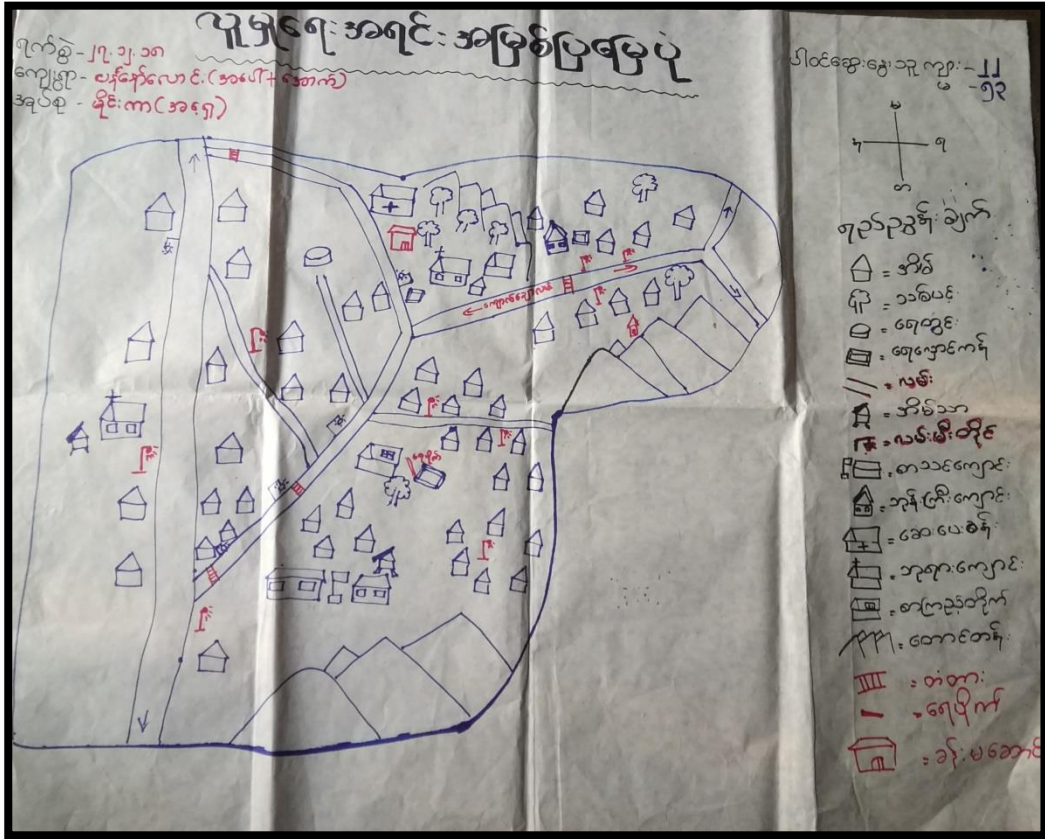 လူမှုရေးအရင်းအမြစ်ပြမြေပုံ
ရက်စွဲ - ၂၇.၁၂.၁၈
ကျေးရွာ - ပန်နော်လောင်း (အပေါ် + အောက်)
အုပ်စု - မိုင်းကာ (အရှေ့)
ပါဝင်ဆွေးနွေးသူ ကျား - ၂၂
မ - ၅၃
မ
ရ
တ
ရည်ညွှန်းချက်
= အိမ်
= သစ်ပင်
= ရေတွင်း
= ရေလှောင်ကန်
= လမ်း
= အိမ်သာ
= လမ်းမီးတိုင်
= စာသင်ကျောင်း
= ဘုန်းကြီးကျောင်း
= ဆေးပေးခန်း
= ဘုရားကျောင်း
= စာကြည့်တိုက်
= တောင်တန်း
= တံတား
= ရေပိုက်
= ခန်းမဆောင်